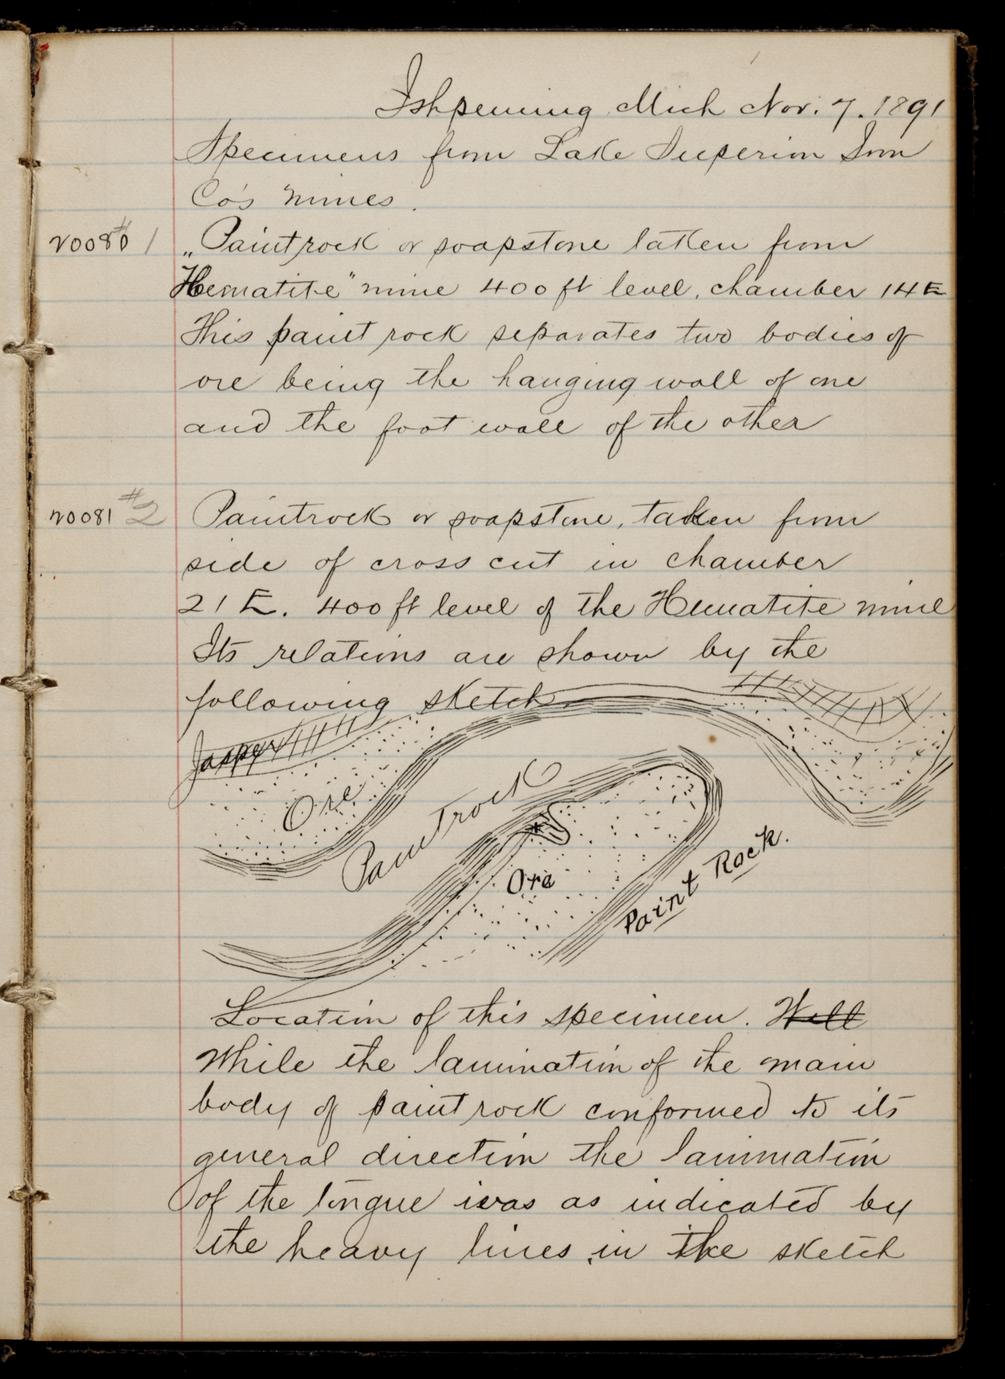 Ishpeming Mich Nov. 7. 1891
Specimens from Lake Superior Iron
Co's mines.
20080 #1 „Paintrock or soapstone taken from
Hematite" mine 400 ft level, chamber 14 E
This paint rock separates two bodies of
ore being the hanging wall of one
and the foot wall of the other
20081 #2 Paintrock or soapstone, taken from
side of cross cut in chamber
21 E. 400 ft level of the Hematite mine
Its relations are shown by the
following sketch
Jasper
Ore
Paintrock
x
Ore
Paint Rock.
Location of this specimen. Will
While the lamination of the main
body of paint rock conformed to its
general direction the lamination
of the tongue was as indicated by
the heavy lines in the sketch